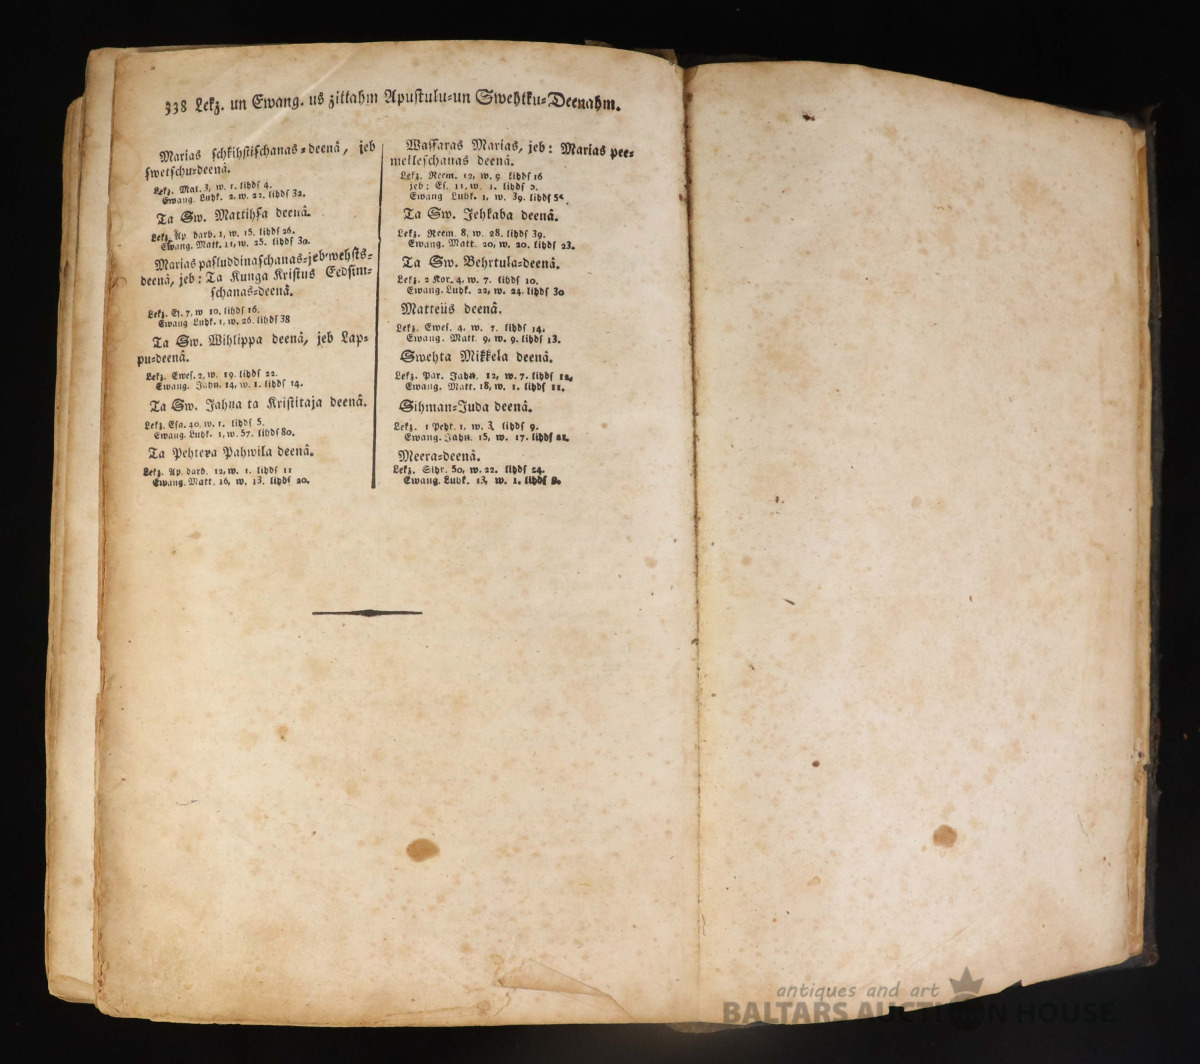 338 Lekz. un Ewang. us zittahm Apustulu-un Swehtku-Deenahm.
Marias schkihstischanas-deenâ, jeb
swetschu-deenâ.
Lekz. Mal. 3, w. 1. lihds 4.
Ewang. Luhk. 2, w. 22. lihds 32.
Ta Sw. Mattihsa deenâ.
Lekz. Ap darb. 1, w. 15. lihds 26.
Ewang. Matt. 11, w. 25. lihds 30.
Marias pasluddinaschanas-jeb wehsts-
deenâ, jeb: Ta Kunga Kristus Eedsim-
schanas-deenâ.
Lekz. Es. 7, w 10. lihds 16.
Ewang Luhk. 1, w. 26. lihds 38
Ta Sw. Wihlippa deenâ, jeb Lap-
pu-deenâ.
Lekz. Ewes. 2, w. 19. lihds 22.
Ewang. Jahn. 14, w. 1. lihds 14.
Ta Sw. Jahna ta Kristitaja deenâ.
Lekz. Esa. 40, w. 1. lihds 5.
Ewang. Luhk. 1, w. 57. lihds 80.
Ta Pehtera Pahwila deenâ.
Lekz. Ap. darb. 12, w. 1. lihds 11
Ewang. Matt. 16, w. 13. lihds 20.
Wassaras Marias, jeb: Marias pee-
melleschanas deenâ.
Lekz. Reem. 12, w. 9. lihds 16
jeb: Es. 11, w. 1. lihds
Ewang Luhk. 1, w. 39. lihds
Ta Sw. Jehkaba deenâ.
Lekz. Reem. 8, w. 28. lihds 39.
Ewang. Matt. 20, w. 20. lihds 23.
Ta Sw. Behrtula-deenâ.
Lekz. 2 Kor. 4, w. 7. lihds 10.
Ewang. Luhk. 22, w. 24. lihds 30
Matteüs deenâ.
Lekz. Ewes. 4, w. 7. lihds 14.
Ewang. Matt. 9, w. 9. lihds 13.
Swehta Mikkela deenâ.
Lekz. Par. Jahn. 12, w. 7. lihds 12.
Ewang. Matt. 18, w. 1. lihds 11.
Sihman-Juda deenâ.
Lekz. 1 Peht. 1, w. 3 lihds 9.
Ewang. Jahn. 15, w. 17. lihds 21.
Meera-deenâ.
Lekz. Sihr. 50, w. 22. lihds 24.
Ewang. Luhk. 13, w. 1. lihds 9.
antiques and art
BALTARS AUCTION HOUSE